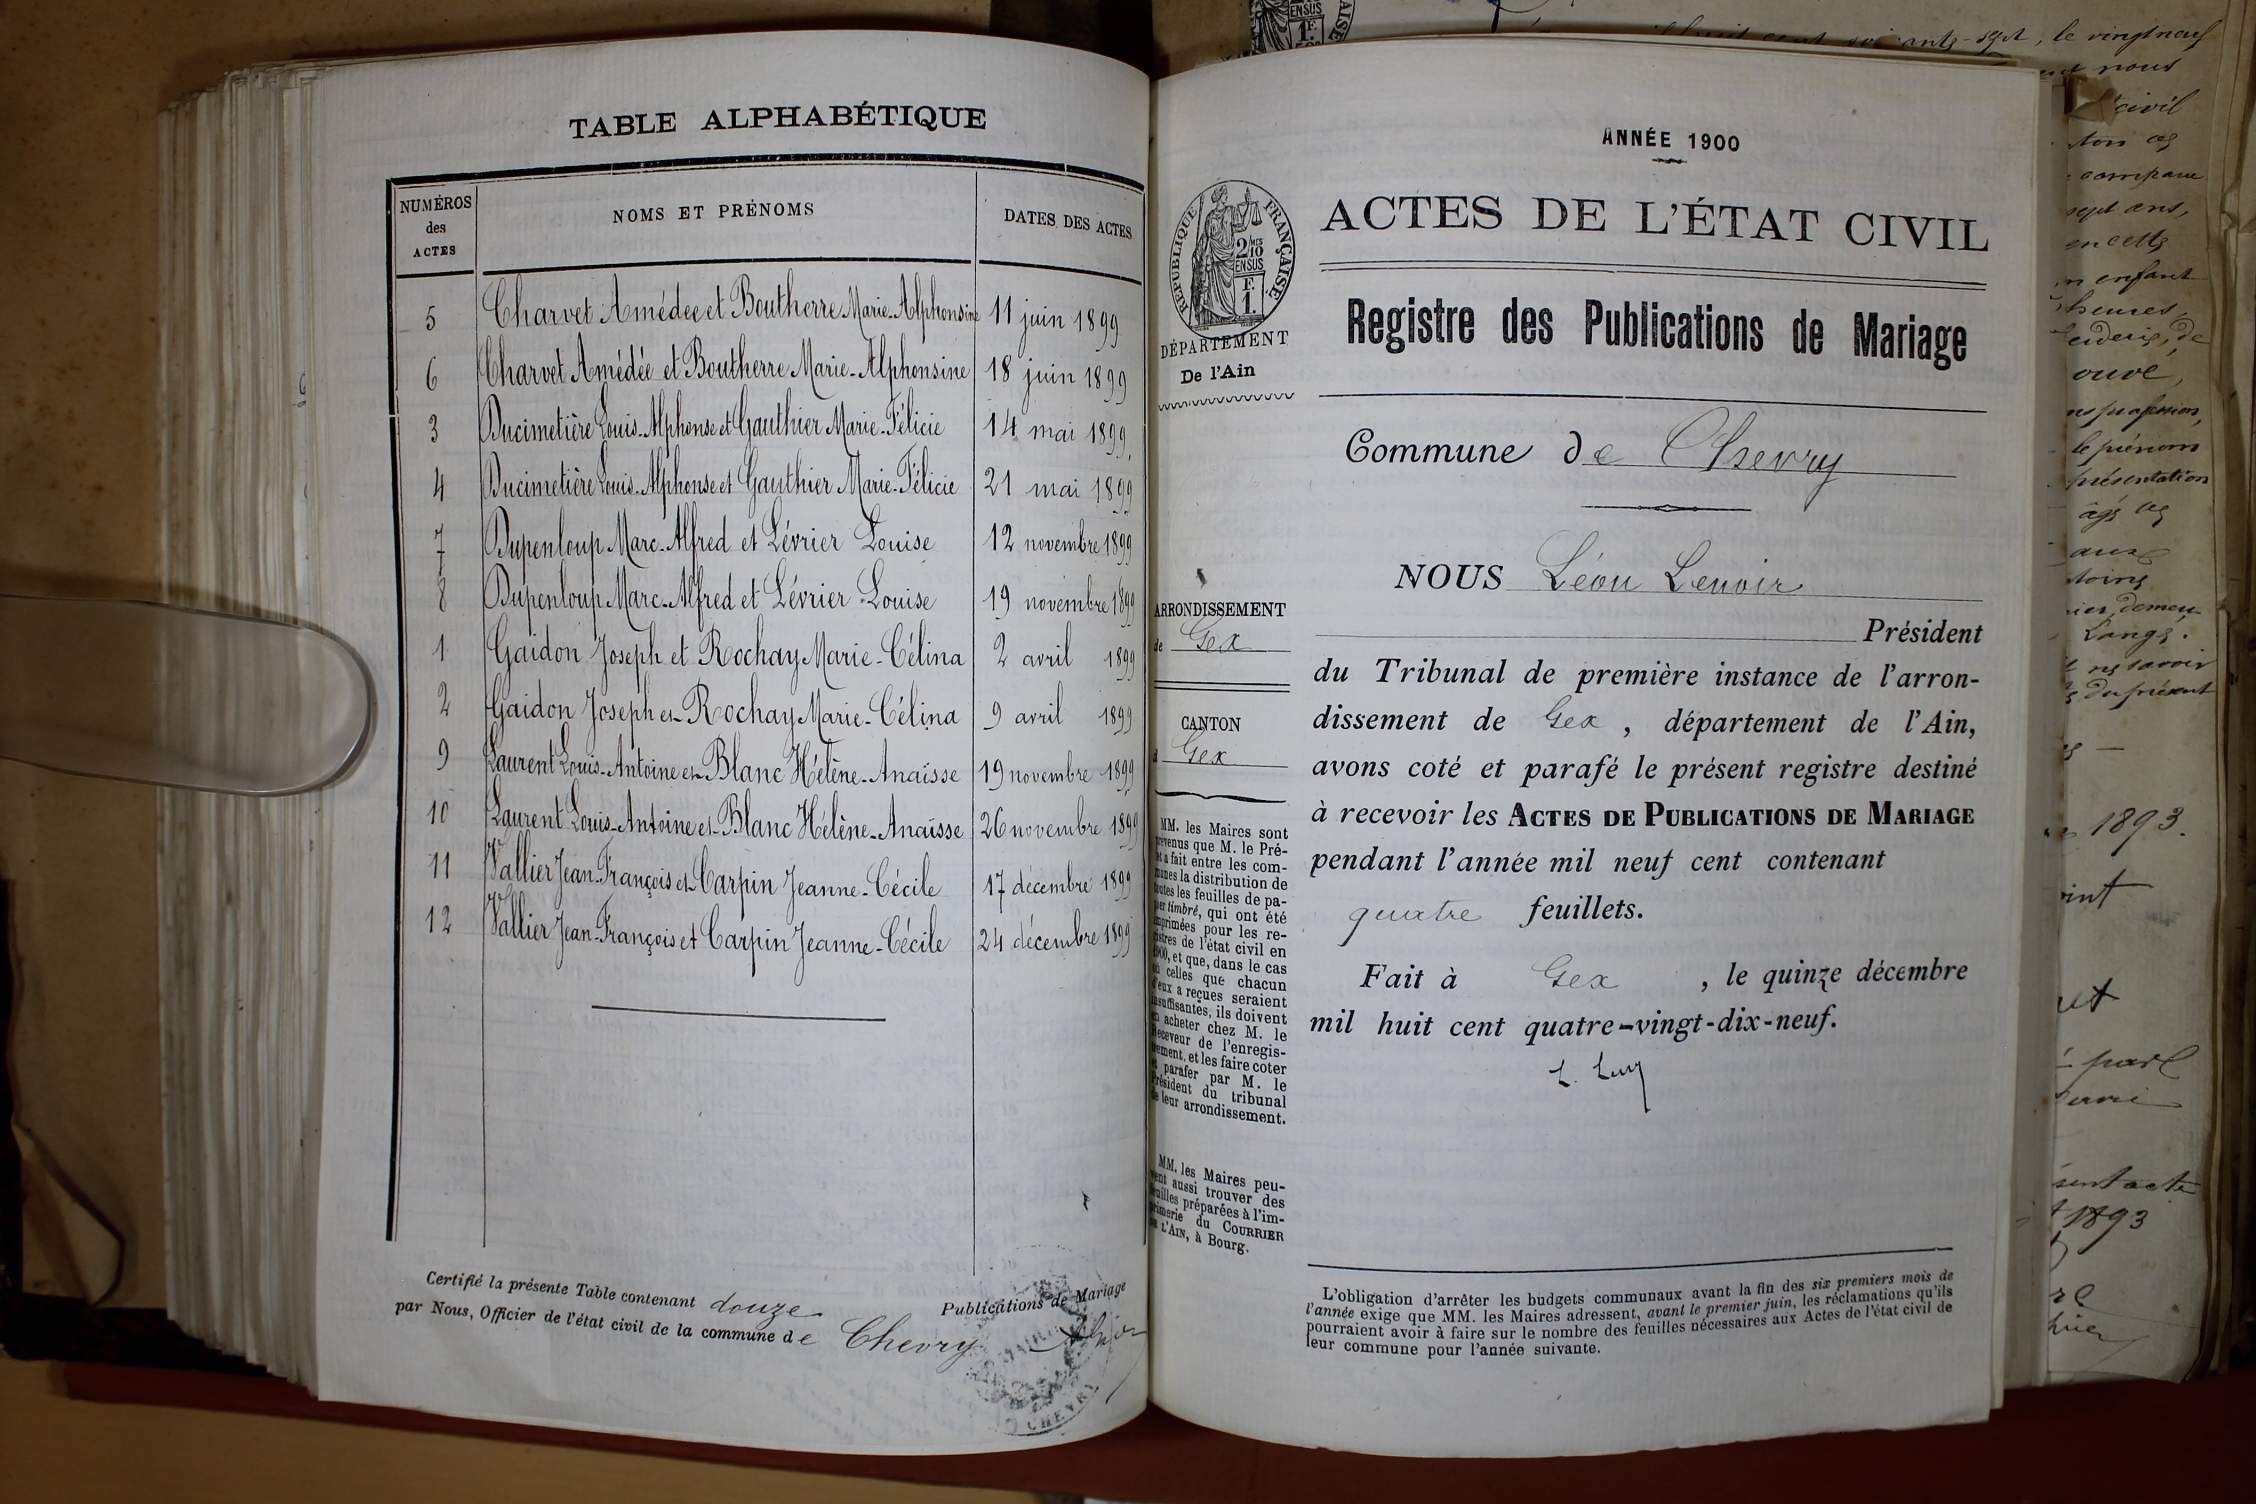 TABLE ALPHABÉTIQUE
NUMÉROS des ACTES
NOMS ET PRÉNOMS
DATES DES ACTES
5 Charvet Amédée et Boutherre Marie-Alphonsine 11 juin 1899
6 Charvet Amédée et Boutherre Marie-Alphonsine 18 juin 1899
3 Ducimetière Louis-Alphonse et Gauthier Marie-Félicie 14 mai 1899
4 Ducimetière Louis-Alphonse et Gauthier Marie-Félicie 21 mai 1899
7 Dupenloup Marc-Alfred et Lévrier Louise 12 novembre 1899
8 Dupenloup Marc-Alfred et Lévrier Louise 19 novembre 1899
1 Gaidon Joseph et Rochay Marie-Célina 2 avril 1899
2 Gaidon Joseph et Rochay Marie-Célina 9 avril 1899
9 Laurent Louis-Antoine et Blanc Hélène-Anaïsse 19 novembre 1899
10 Laurent Louis-Antoine et Blanc Hélène-Anaïsse 26 novembre 1899
11 Vallier Jean-François et Carpin Jeanne-Cécile 17 décembre 1899
12 Vallier Jean-François et Carpin Jeanne-Cécile 24 décembre 1899
Certifié la présente Table contenant douze Publications de Mariage
par Nous, Officier de l'état civil de la commune de Chevry
CHEVRY
ANNÉE 1900
ACTES DE L'ÉTAT CIVIL
Registre des Publications de Mariage
Commune de Chevry
NOUS Léon Lenoir
Président
du Tribunal de première instance de l'arron-
dissement de Gex, département de l'Ain,
avons coté et parafé le présent registre destiné
à recevoir les ACTES DE PUBLICATIONS DE MARIAGE
pendant l'année mil neuf cent contenant
quatre feuillets.
Fait à Gex, le quinze décembre
mil huit cent quatre-vingt-dix-neuf.
L'obligation d'arrêter les budgets communaux avant la fin des six premiers mois de
l'année exige que MM. les Maires adressent, avant le premier juin, les réclamations qu'ils
pourraient avoir à faire sur le nombre des feuilles nécessaires aux Actes de l'état civil de
leur commune pour l'année suivante.
RÉPUBLIQUE FRANÇAISE
2/10 EN SUS
1 F.
DÉPARTEMENT
De l'Ain
ARRONDISSEMENT
de Gex
CANTON
Gex
MM. les Maires sont
prévenus que M. le Pré-
fet a fait entre les com-
munes la distribution de
toutes les feuilles de pa-
pier timbré, qui ont été
imprimées pour les re-
gistres de l'état civil en
1900, et que, dans le cas
où celles que chacun
d'eux a reçues seraient
insuffisantes, ils doivent
en acheter chez M. le
Receveur de l'enregis-
trement, et les faire coter
et parafer par M. le
Président du tribunal
de leur arrondissement.
MM. les Maires peu-
vent aussi trouver des
feuilles préparées à l'im-
primerie du COURRIER
DE L'AIN, à Bourg.
le vingtneuf
nous
civil
sept ans,
enfant
heures,
profession,
le prénom
présentation
savoir
du présent
1893.
1893